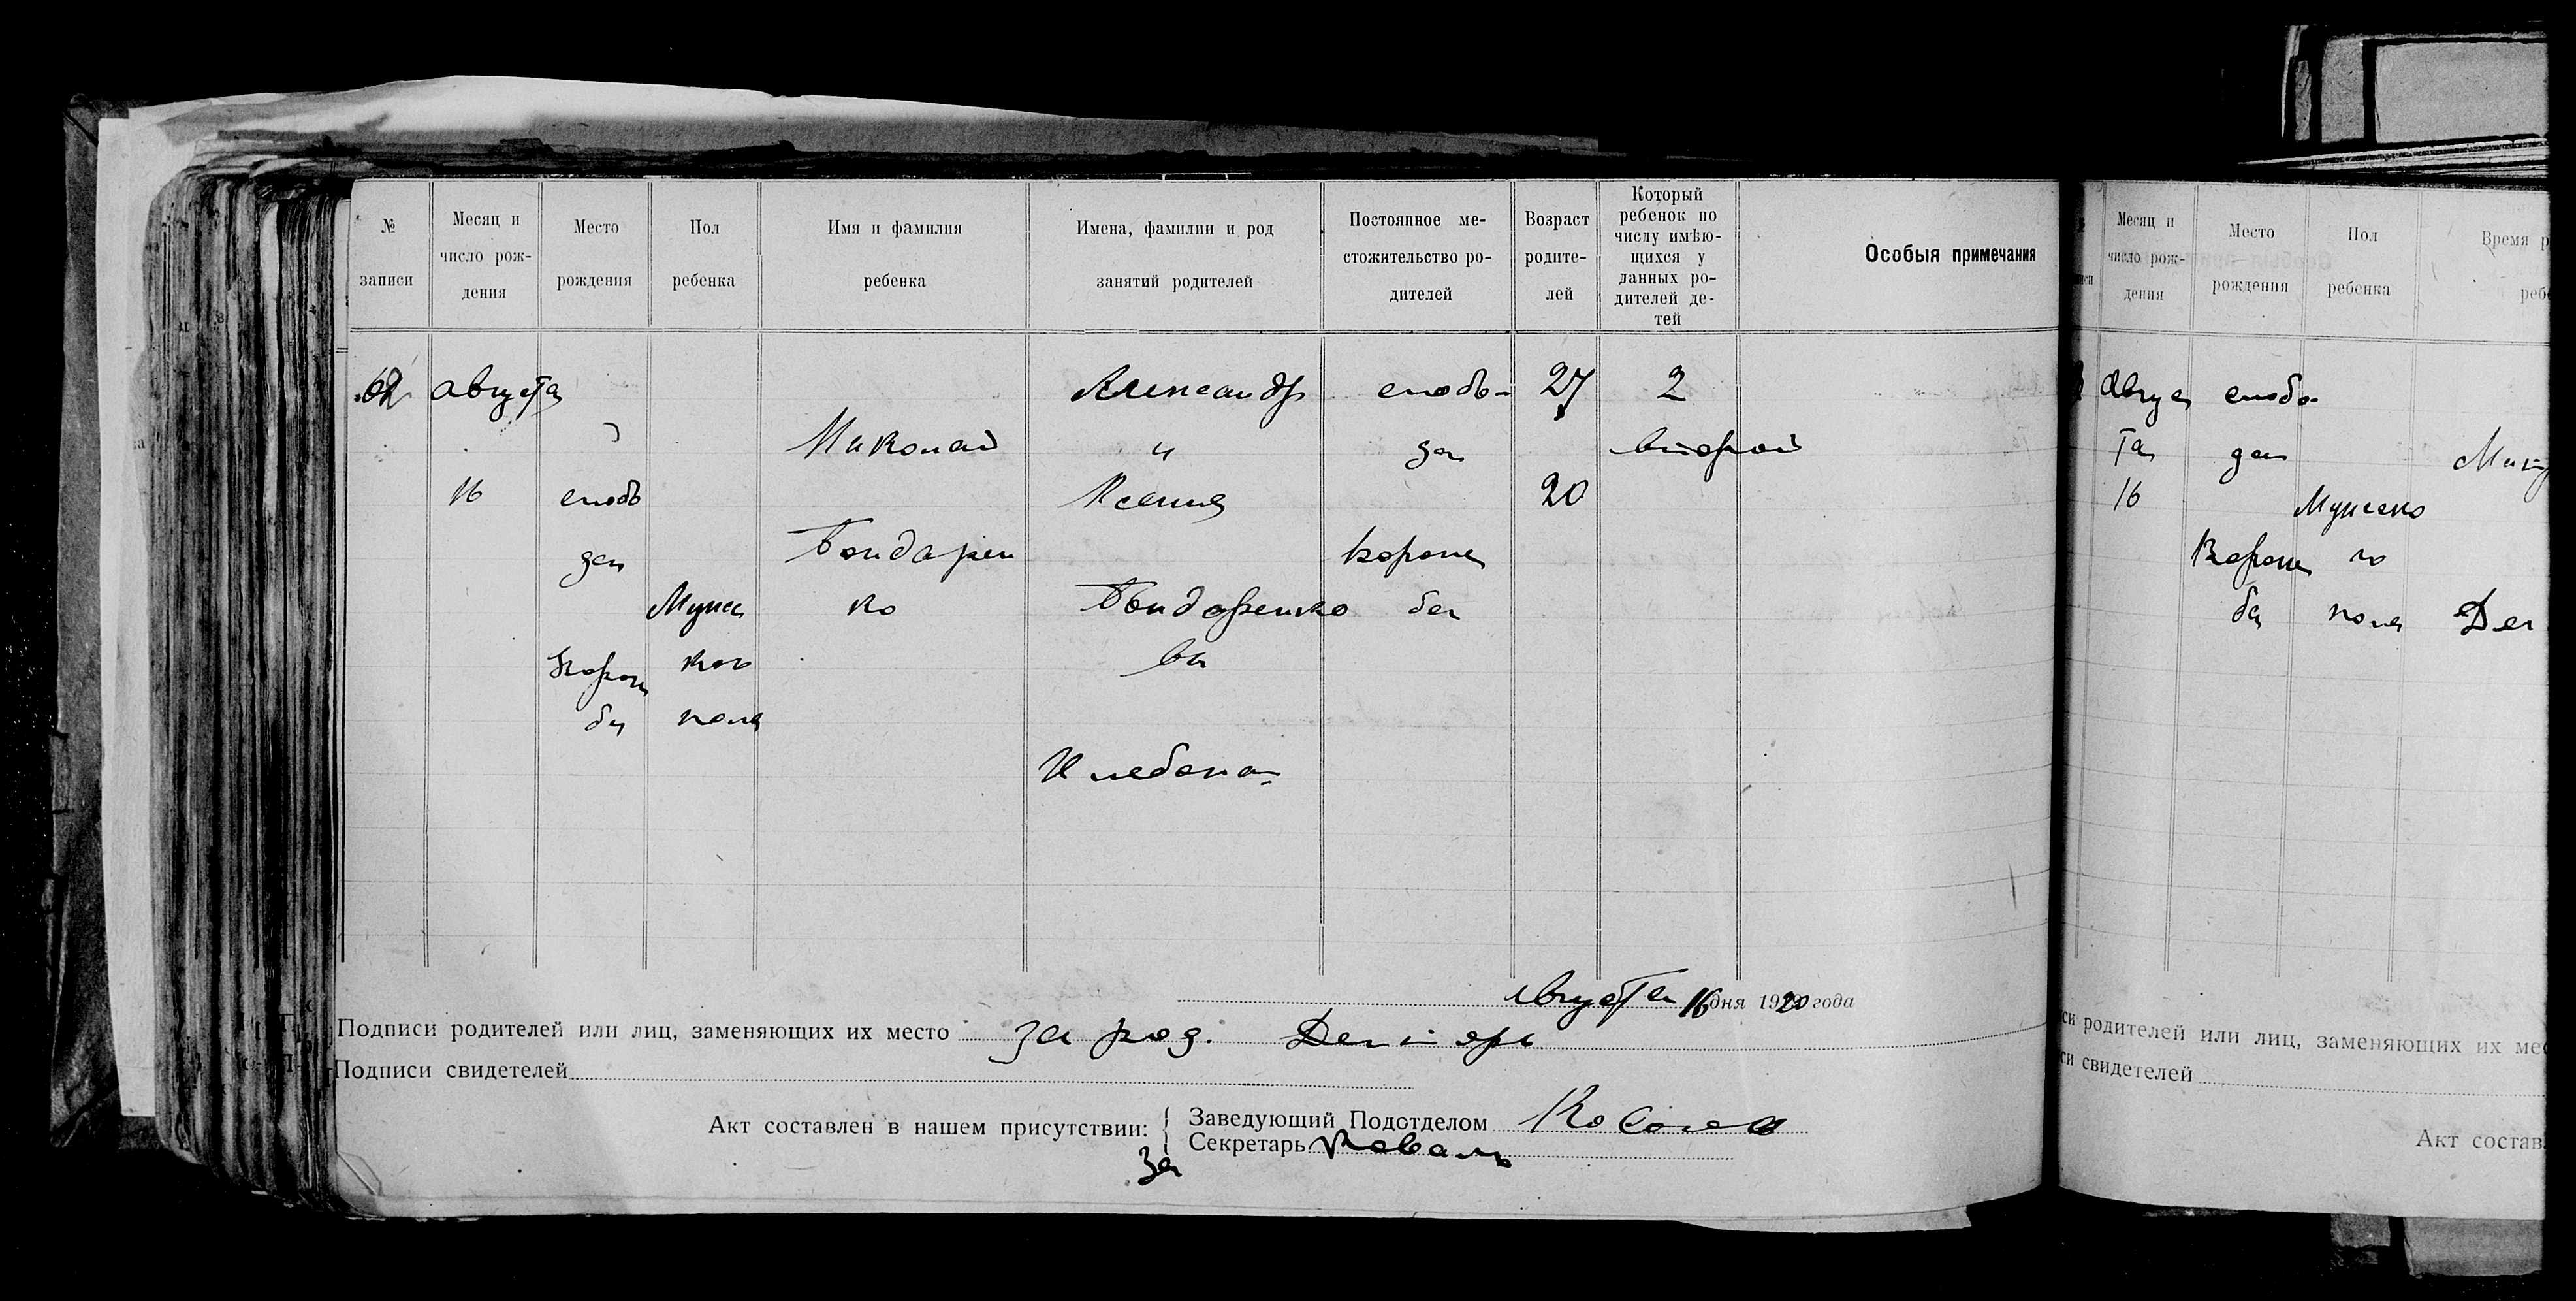 № записи
Месяц и число рож-дения
Место рождения
Пол ребенка
Имя и фамилия ребенка
Имена, фамилии и род занятий родителей
Постоянное ме-стожительство ро-дителей
Возраст родите-лей
Который ребенок по числу имѣю-щихся у данных ро-дителей де-тей
Особыя примечания
62 августа Александр слобо- 27 2
Николай и да второй
16 слобо Ксения 20
да Бондарен
Мужс ко Бондаренко ба
ког ва
ба пола
Хлебопа-
Августа 16 дня 1920 года
Подписи родителей или лиц, заменяющих их место за род.
Подписи свидетелей
Акт составлен в нашем присутствии:
Заведующий Подотделом
За Секретарь Коваль
Месяц и число рож-дения
Место рождения
Пол ребенка
Время р
реб
Авгус слобо-
та да
16 Мужско
го
ба пола
си родителей или лиц, заменяющих их мес
си свидетелей
Акт состав